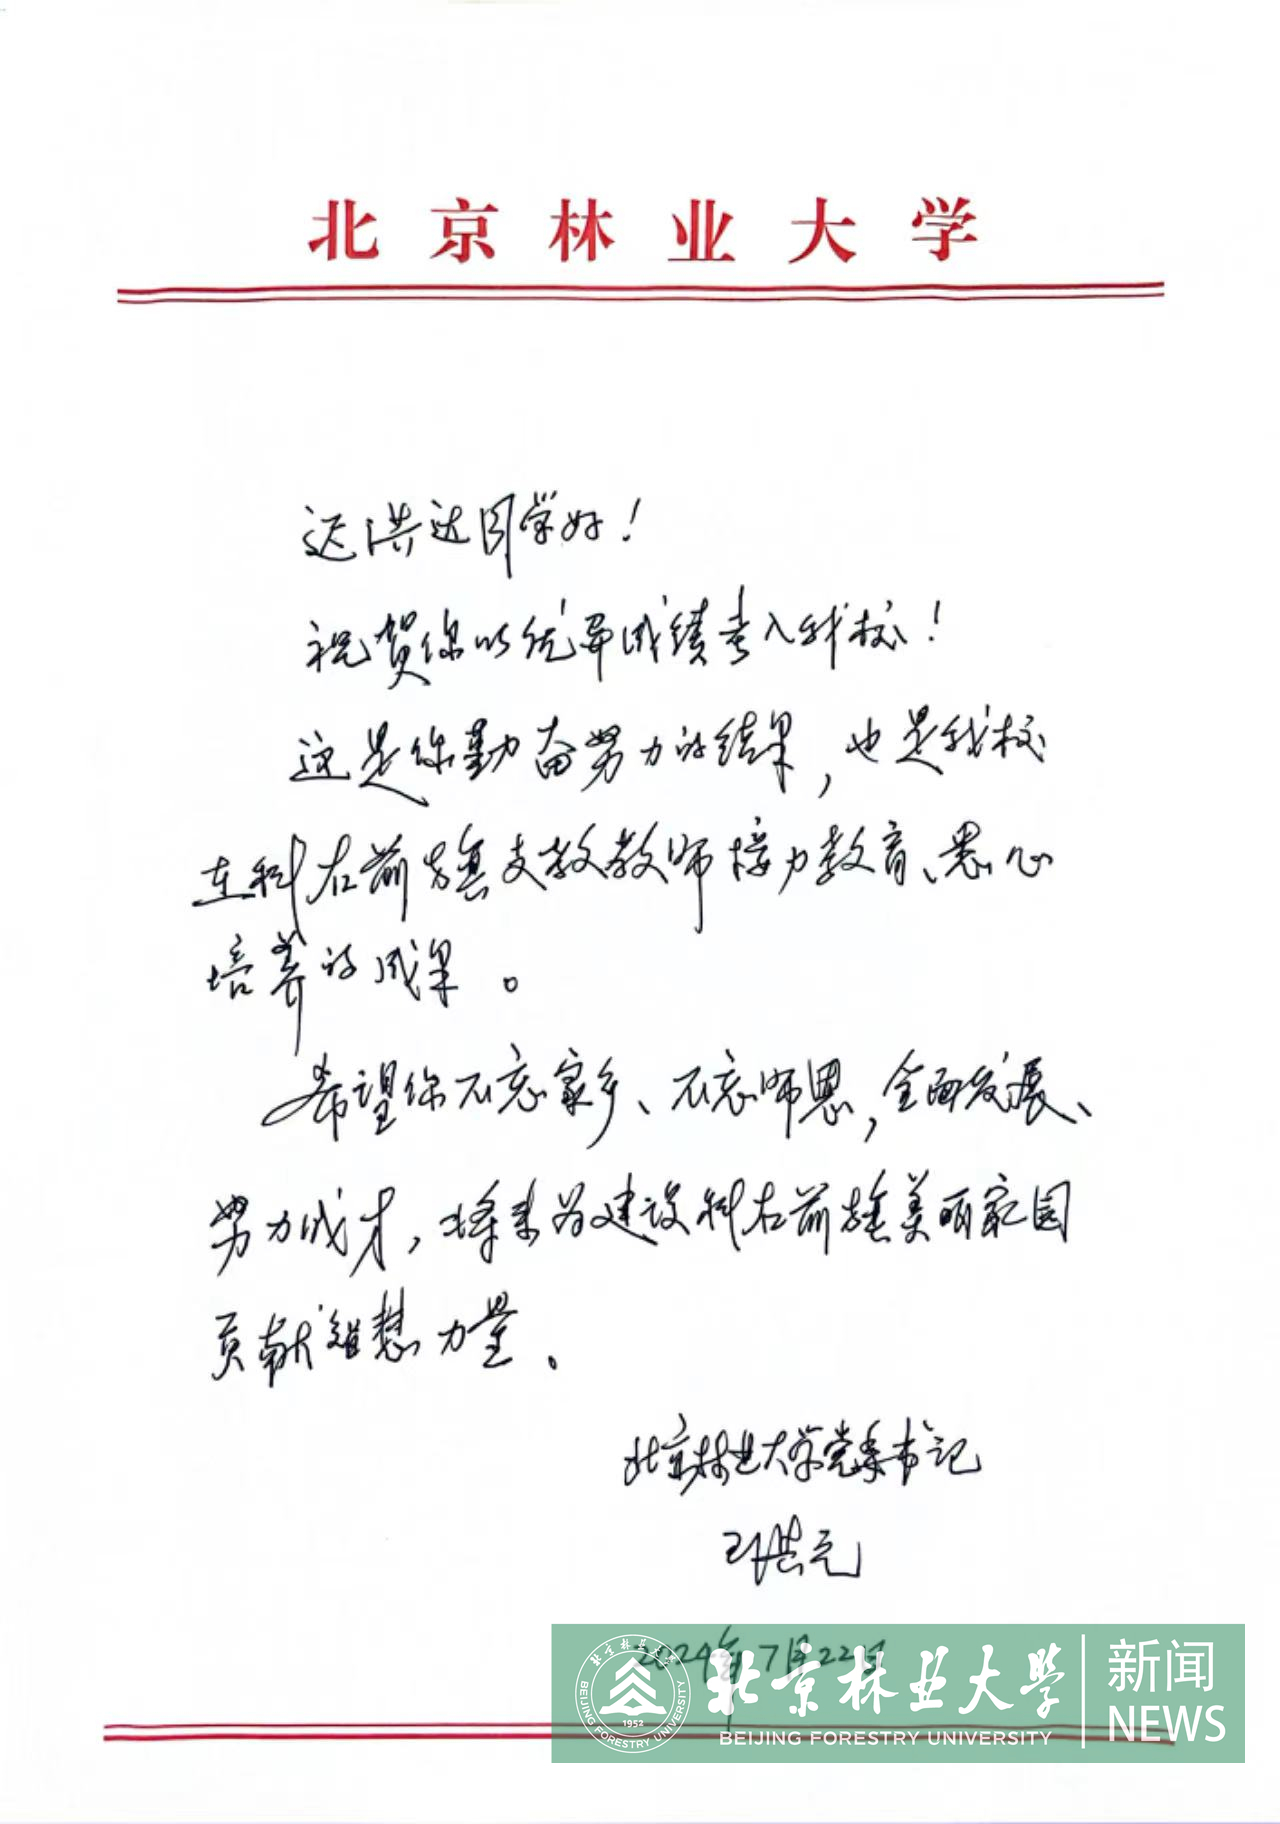 北京林业大学
迟洪达同学好！
祝贺你以优异成绩考入我校！
这是你勤奋努力的结果，也是我校
在科右前旗支教教师接力教育、悉心
培养的成果。
希望你不忘家乡、不忘师恩，全面发展、
努力成才，将来为建设科右前旗美丽家园
贡献智慧力量。
北京林业大学党委书记
王洪元
2024年7月22日
北京林业大学
BEIJING FORESTRY UNIVERSITY
1952
北京林业大学
BEIJING FORESTRY UNIVERSITY
新闻
NEWS